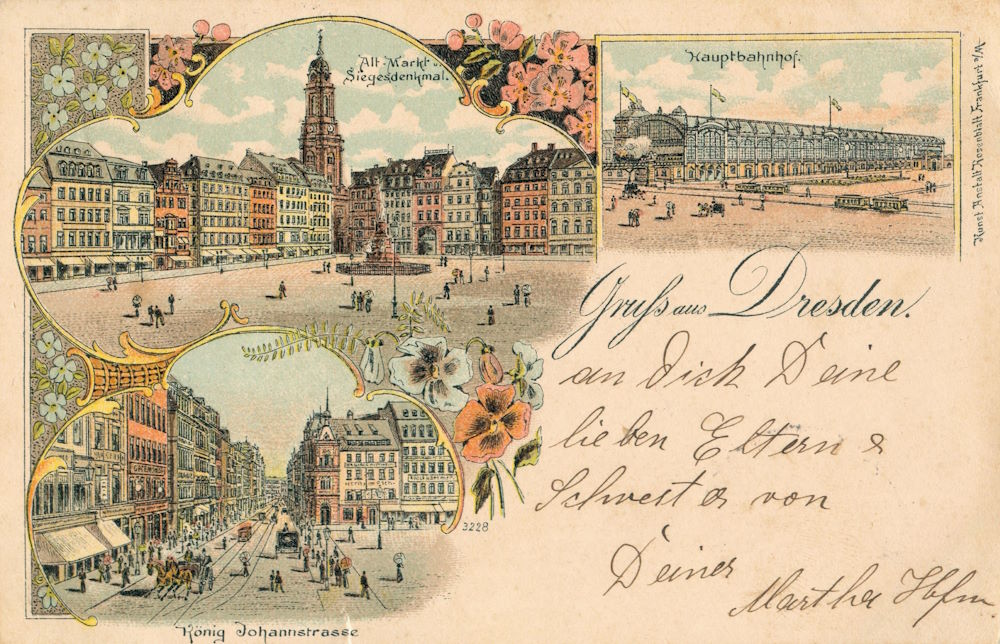 Alt-Markt u.
Siegesdenkmal.
Hauptbahnhof.
Kunst Anstalt Rosenblatt, Frankfurt a/M
Gruss aus Dresden.
an Dich Deine
lieben Eltern &
Schwester von
Deiner
Martha
3228
König Johannstrasse